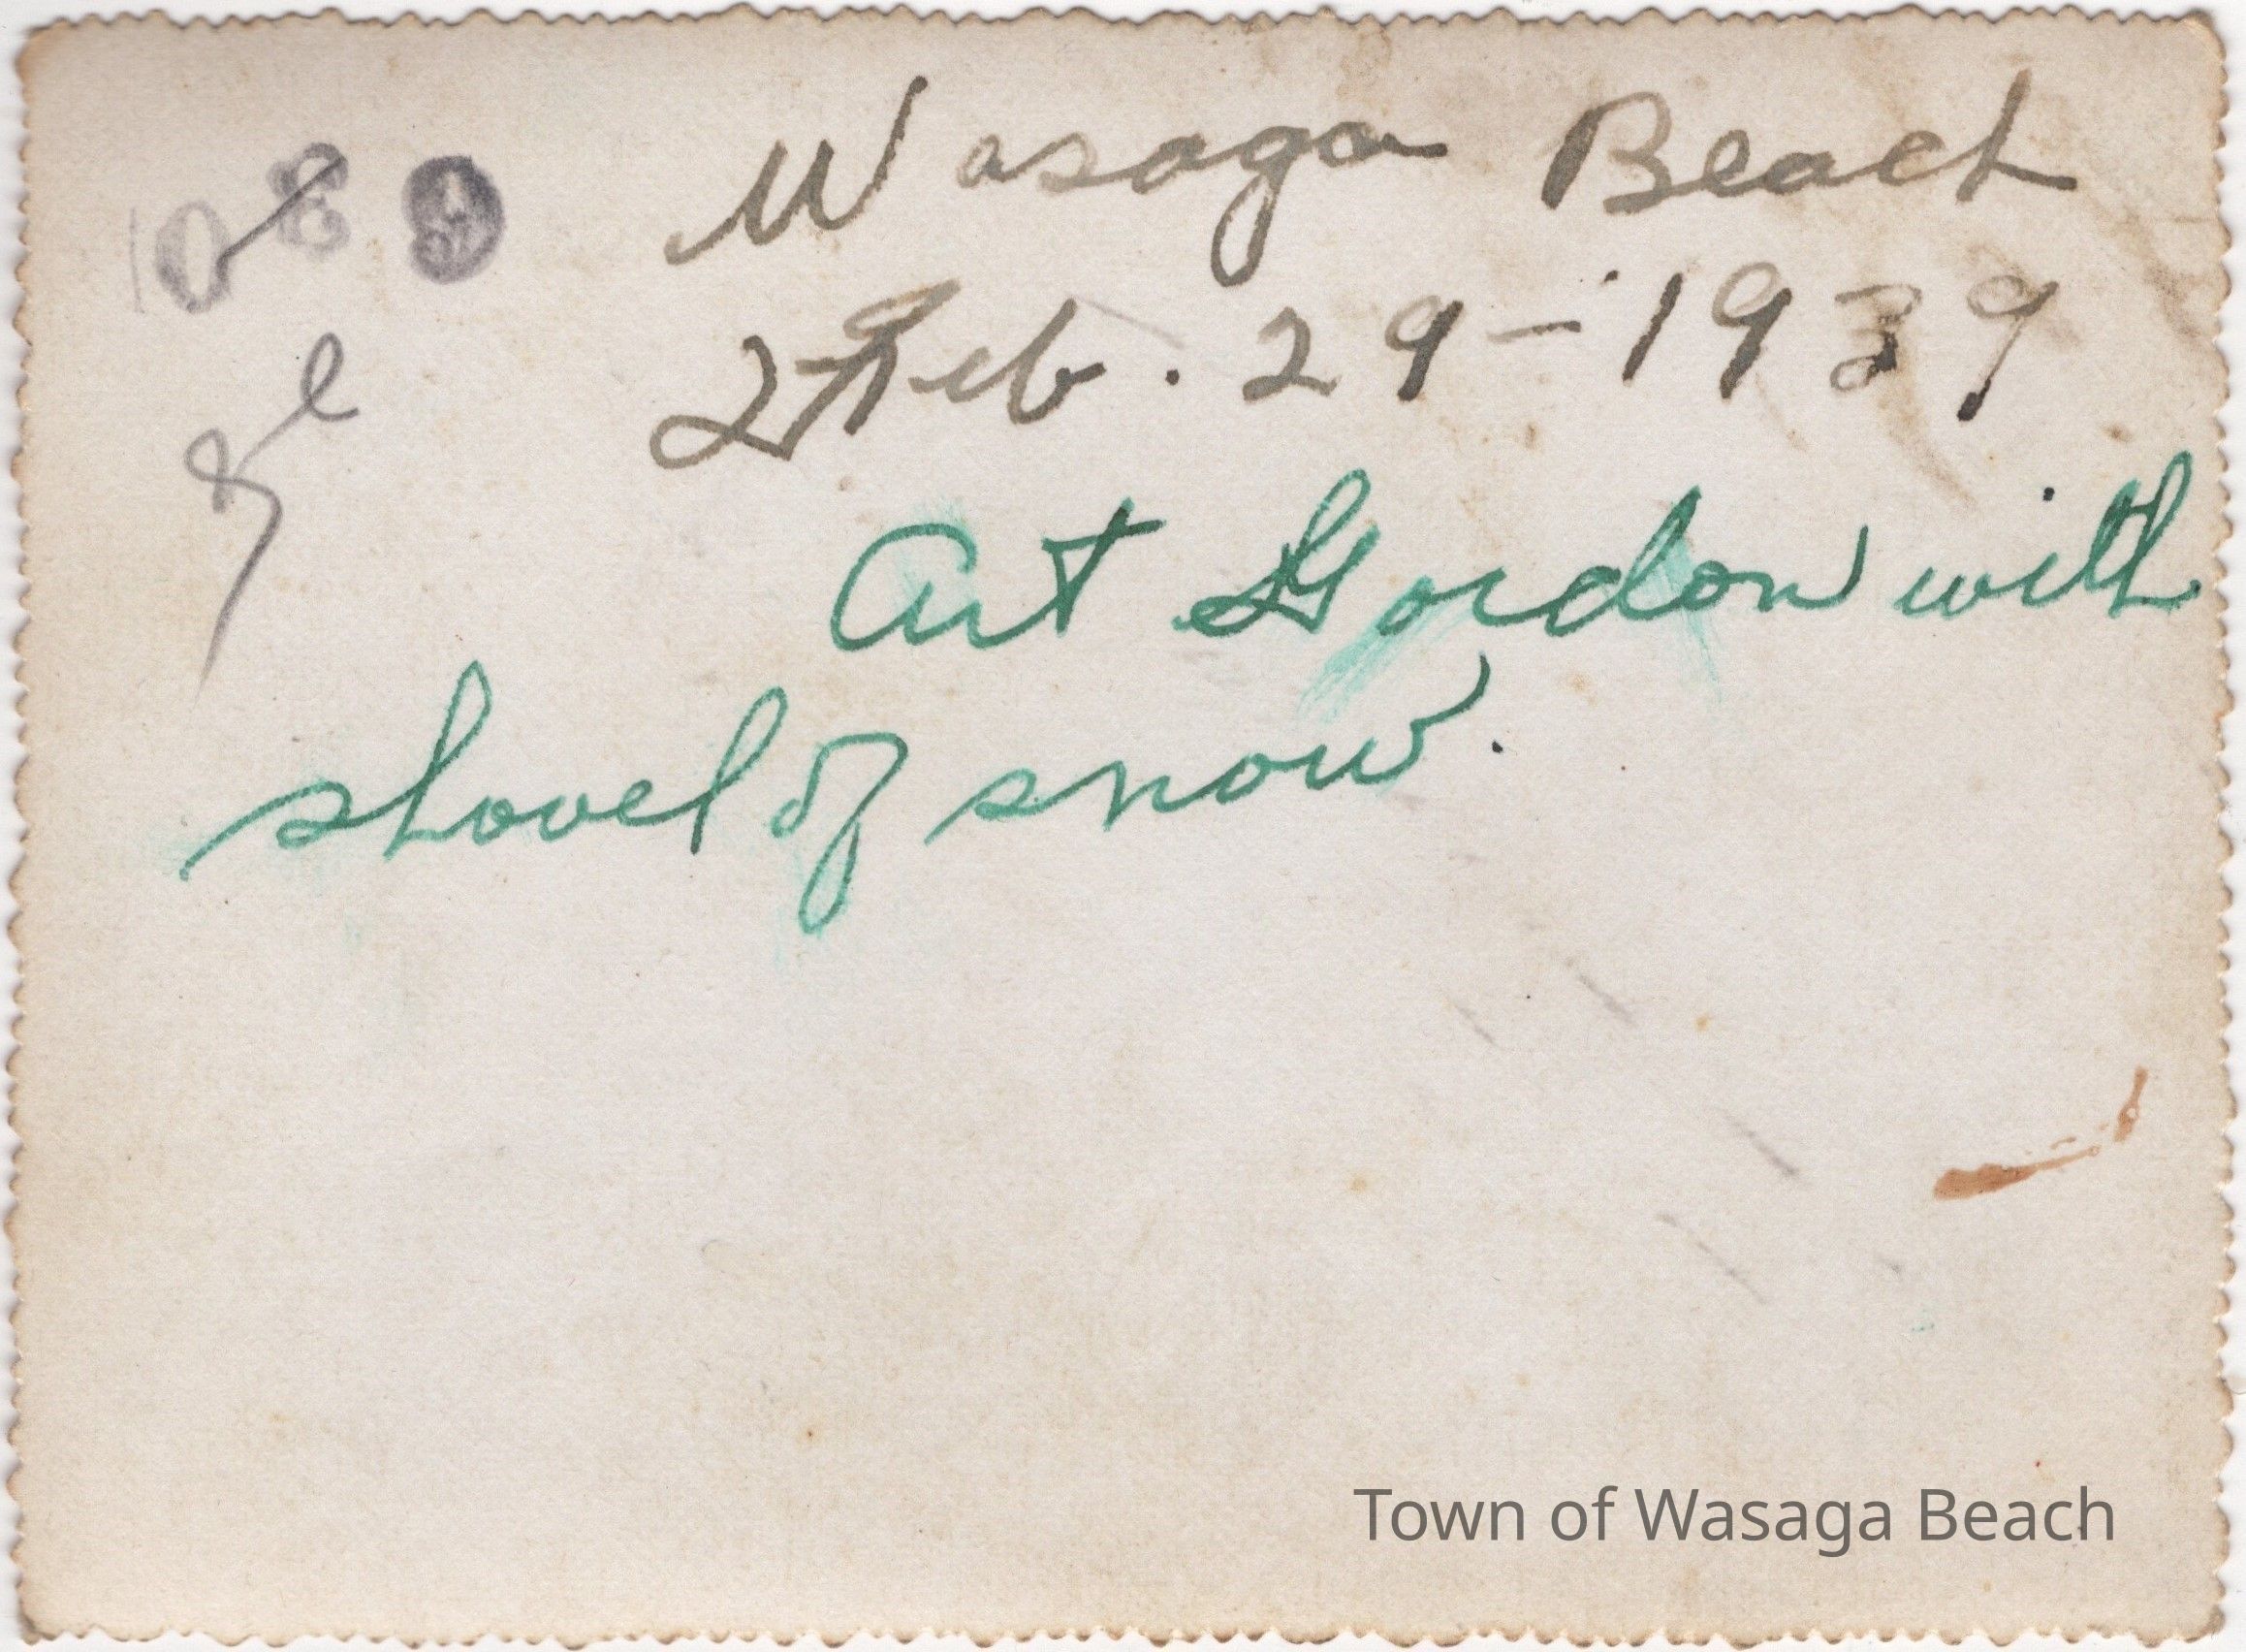 Wasaga Beach
Feb. 29-1939
Art Gordon with
shovel of snow.
Town of Wasaga Beach